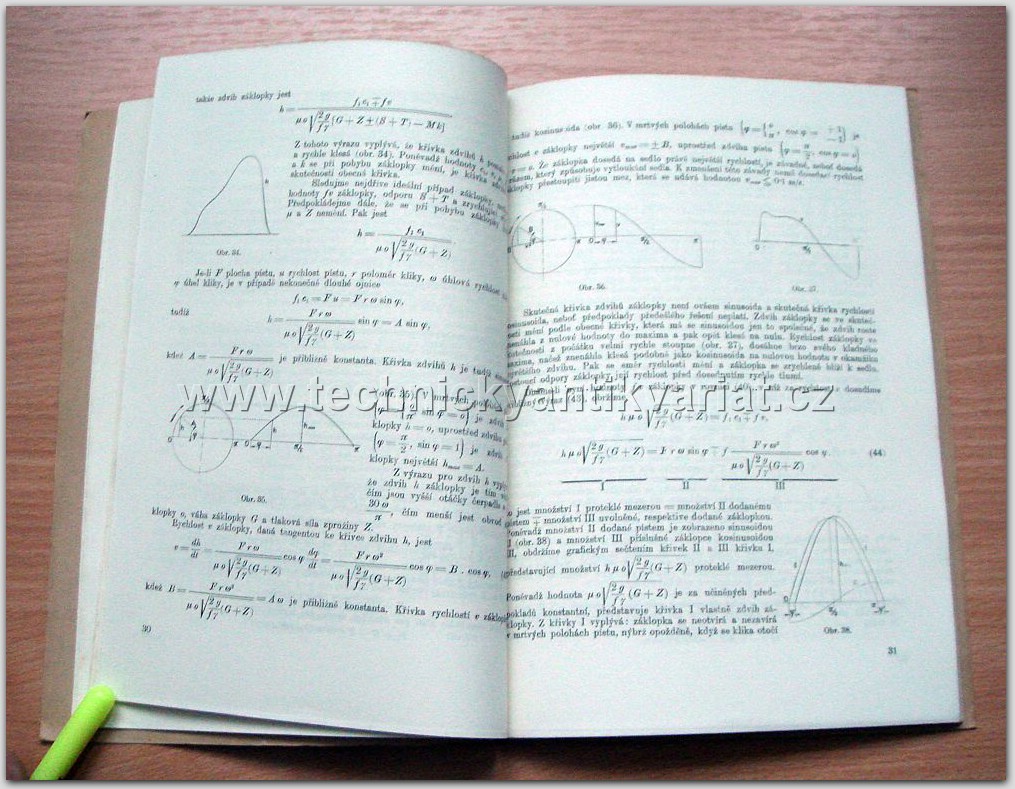 takže zdvih záklopky jest
h = f₁ c₁ ∓ f v / μ o √(2 g / f γ [G + Z ± (S + T) − M k])
Z tohoto výrazu vyplývá, že křivka zdvihů h
a rychle klesá (obr. 34). Poněvadž hodnoty
a k se při pohybu záklopky mění, je křivka
skutečnosti obecně křivka.
Sledujme nejdříve ideální případ záklopky,
hodnoty fv záklopky, odporu S + T a
Předpokládejme dále, že se při pohybu záklopky
μ a Z nemění. Pak jest
h = f₁ c₁ / μ o √(2 g / f γ (G + Z))
Obr. 34.
Je-li F plocha pístu, u rychlost pístu, r poloměr kliky, ω úhlová rychlost
φ úhel kliky, je v případě nekonečně dlouhé ojnice
f₁ c₁ = F u = F r ω sin φ,
tudíž
h = F r ω / μ o √(2 g / f γ (G + Z)) sin φ = A sin φ,
kdež A = F r ω / μ o √(2 g / f γ (G + Z)) je přibližně konstanta. Křivka zdvihů h je tudíž
(obr. 35). V mrtvých
sin φ = o) je zdvih
klopky h = o, uprostřed zdvihu
(φ = π/2, sin φ = 1) je zdvih
klopky největší hmax = A.
Z výrazu pro zdvih h
že zdvih h záklopky je tím
čím jsou vyšší otáčky čerpadla
30 ω / π, čím menší jest obvod
Obr. 35.
klopky o, váha záklopky G a tlaková síla zpružiny Z.
Rychlost v záklopky, daná tangentou ke křivce zdvihu h, jest
v = dh/dt = F r ω / μ o √(2 g / f γ (G + Z)) cos φ dφ/dt = F r ω² / μ o √(2 g / f γ (G + Z)) cos φ = B . cos φ,
kdež B = F r ω² / μ o √(2 g / f γ (G + Z)) = A ω je přibližně konstanta. Křivka rychlostí v
30
tudíž kosinusoida (obr. 36). V mrtvých polohách pístu
rychlost v záklopky největší vmax = ± B, uprostřed zdvihu pístu (φ = π/2, cos φ = o)
v = o. Že záklopka dosedá na sedlo právě největší rychlostí, je závadné, neboť dosedá
rázem, který způsobuje vytloukání sedla. K zmenšení této závady nemá dosedací rychlost
záklopky přestoupiti jistou mez, která se udává hodnotou vmax ≦ 0·1 m/s.
Obr. 36.
Obr. 37.
Skutečná křivka zdvihů záklopky není ovšem sinusoida a skutečná křivka rychlostí
kosinusoida, neboť předpoklady předešlého řešení neplatí. Zdvih záklopky se ve skuteč-
nosti mění podle obecné křivky, která má se sinusoidou jen to společné, že zdvih roste
znenáhla z nulové hodnoty do maxima a pak opět klesá na nulu. Rychlost záklopky ve
skutečnosti z počátku velmi rychle stoupne (obr. 37), dosáhne brzo svého kladného
maxima, načež znenáhla klesá podobně jako kosinusoida na nulovou hodnotu v okamžiku
největšího zdvihu. Pak se směr rychlosti mění a záklopka se zrychleně blíží k sedlu.
odpory záklopky její rychlost před dosednutím rychle tlumí.
www.technickyantikvariat.cz
h μ o √(2 g / f γ (G + Z)) = f₁ c₁ ∓ f v,
h μ o √(2 g / f γ (G + Z)) = F r ω sin φ ∓ f F r ω² / μ o √(2 g / f γ (G + Z)) cos φ. (44)
I II III
to jest množství I proteklé mezerou = množství II dodanému
pístem ∓ množství III uvolněné, respektive dodané záklopkou.
Poněvadž množství II dodané pístem je zobrazeno sinusoidou
II (obr. 38) a množství III příslušné záklopce kosinusoidou
III, obdržíme grafickým sečtením křivek II a III křivku I,
představující množství h μ o √(2 g / f γ (G + Z)) proteklé mezerou.
Poněvadž hodnota μ o √(2 g / f γ (G + Z)) je za učiněných před-
pokladů konstantní, představuje křivka I vlastně zdvih zá-
klopky. Z křivky I vyplývá: záklopka se neotvírá a nezavírá
v mrtvých polohách pístu, nýbrž opožděně, když se klika otočí
Obr. 38.
31